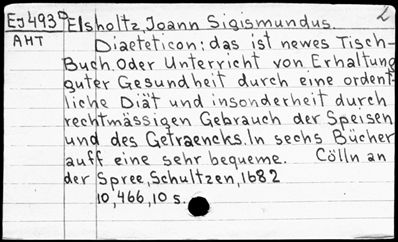 Ej493° Elsholtz, Joann Sigismundus. 2
AHT Diaeteticon: das ist newes Tisch-
Buch. Oder Unterricht von Erhaltung
guter Gesundheit durch eine ordent-
liche Diät und insonderheit durch
rechtmässigen Gebrauch der Speisen
und des Getraencks. In sechs Bücher
auff eine sehr bequeme. Cölln an
der Spree, Schultzen, 1682
10, 466, 10 s.